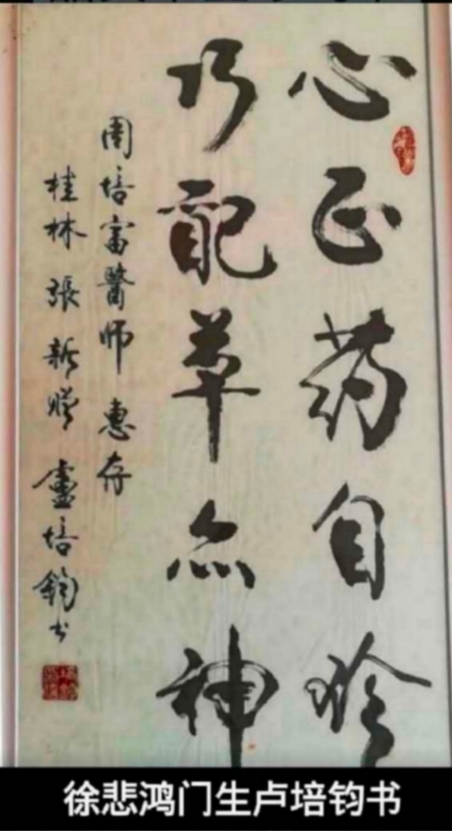 心正药自
巧配草亦神
周培富醫师 惠存
桂林 張新赠 盧培鈞书
徐悲鸿门生卢培钧书